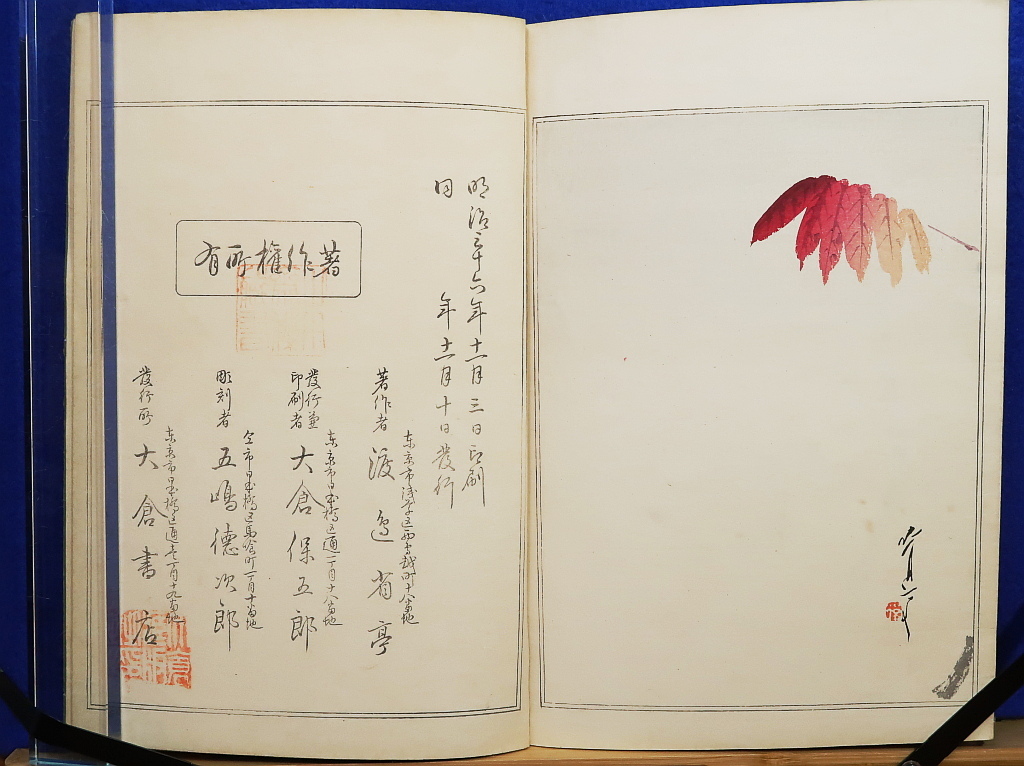 省亭
明治三十六年十一月三日印刷
同年十一月十日發行
東京市浅草区西鳥越町十八番地
著作者 渡邉省亭
著作權所有
東京市日本橋区通一丁目十八番地
發行兼印刷者 大倉保五郎
仝市日本橋区馬喰町一丁目十番地
彫刻者 五嶋徳次郎
東京市日本橋区通壱丁目十九番地
發行所 大倉書店